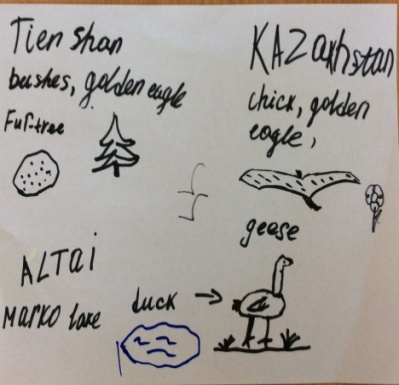 Tien shan
bushes, golden eagle
Fur-tree
KAZakhstan
chick, golden
eagle,
geese
ALTai
MARKO lake
duck